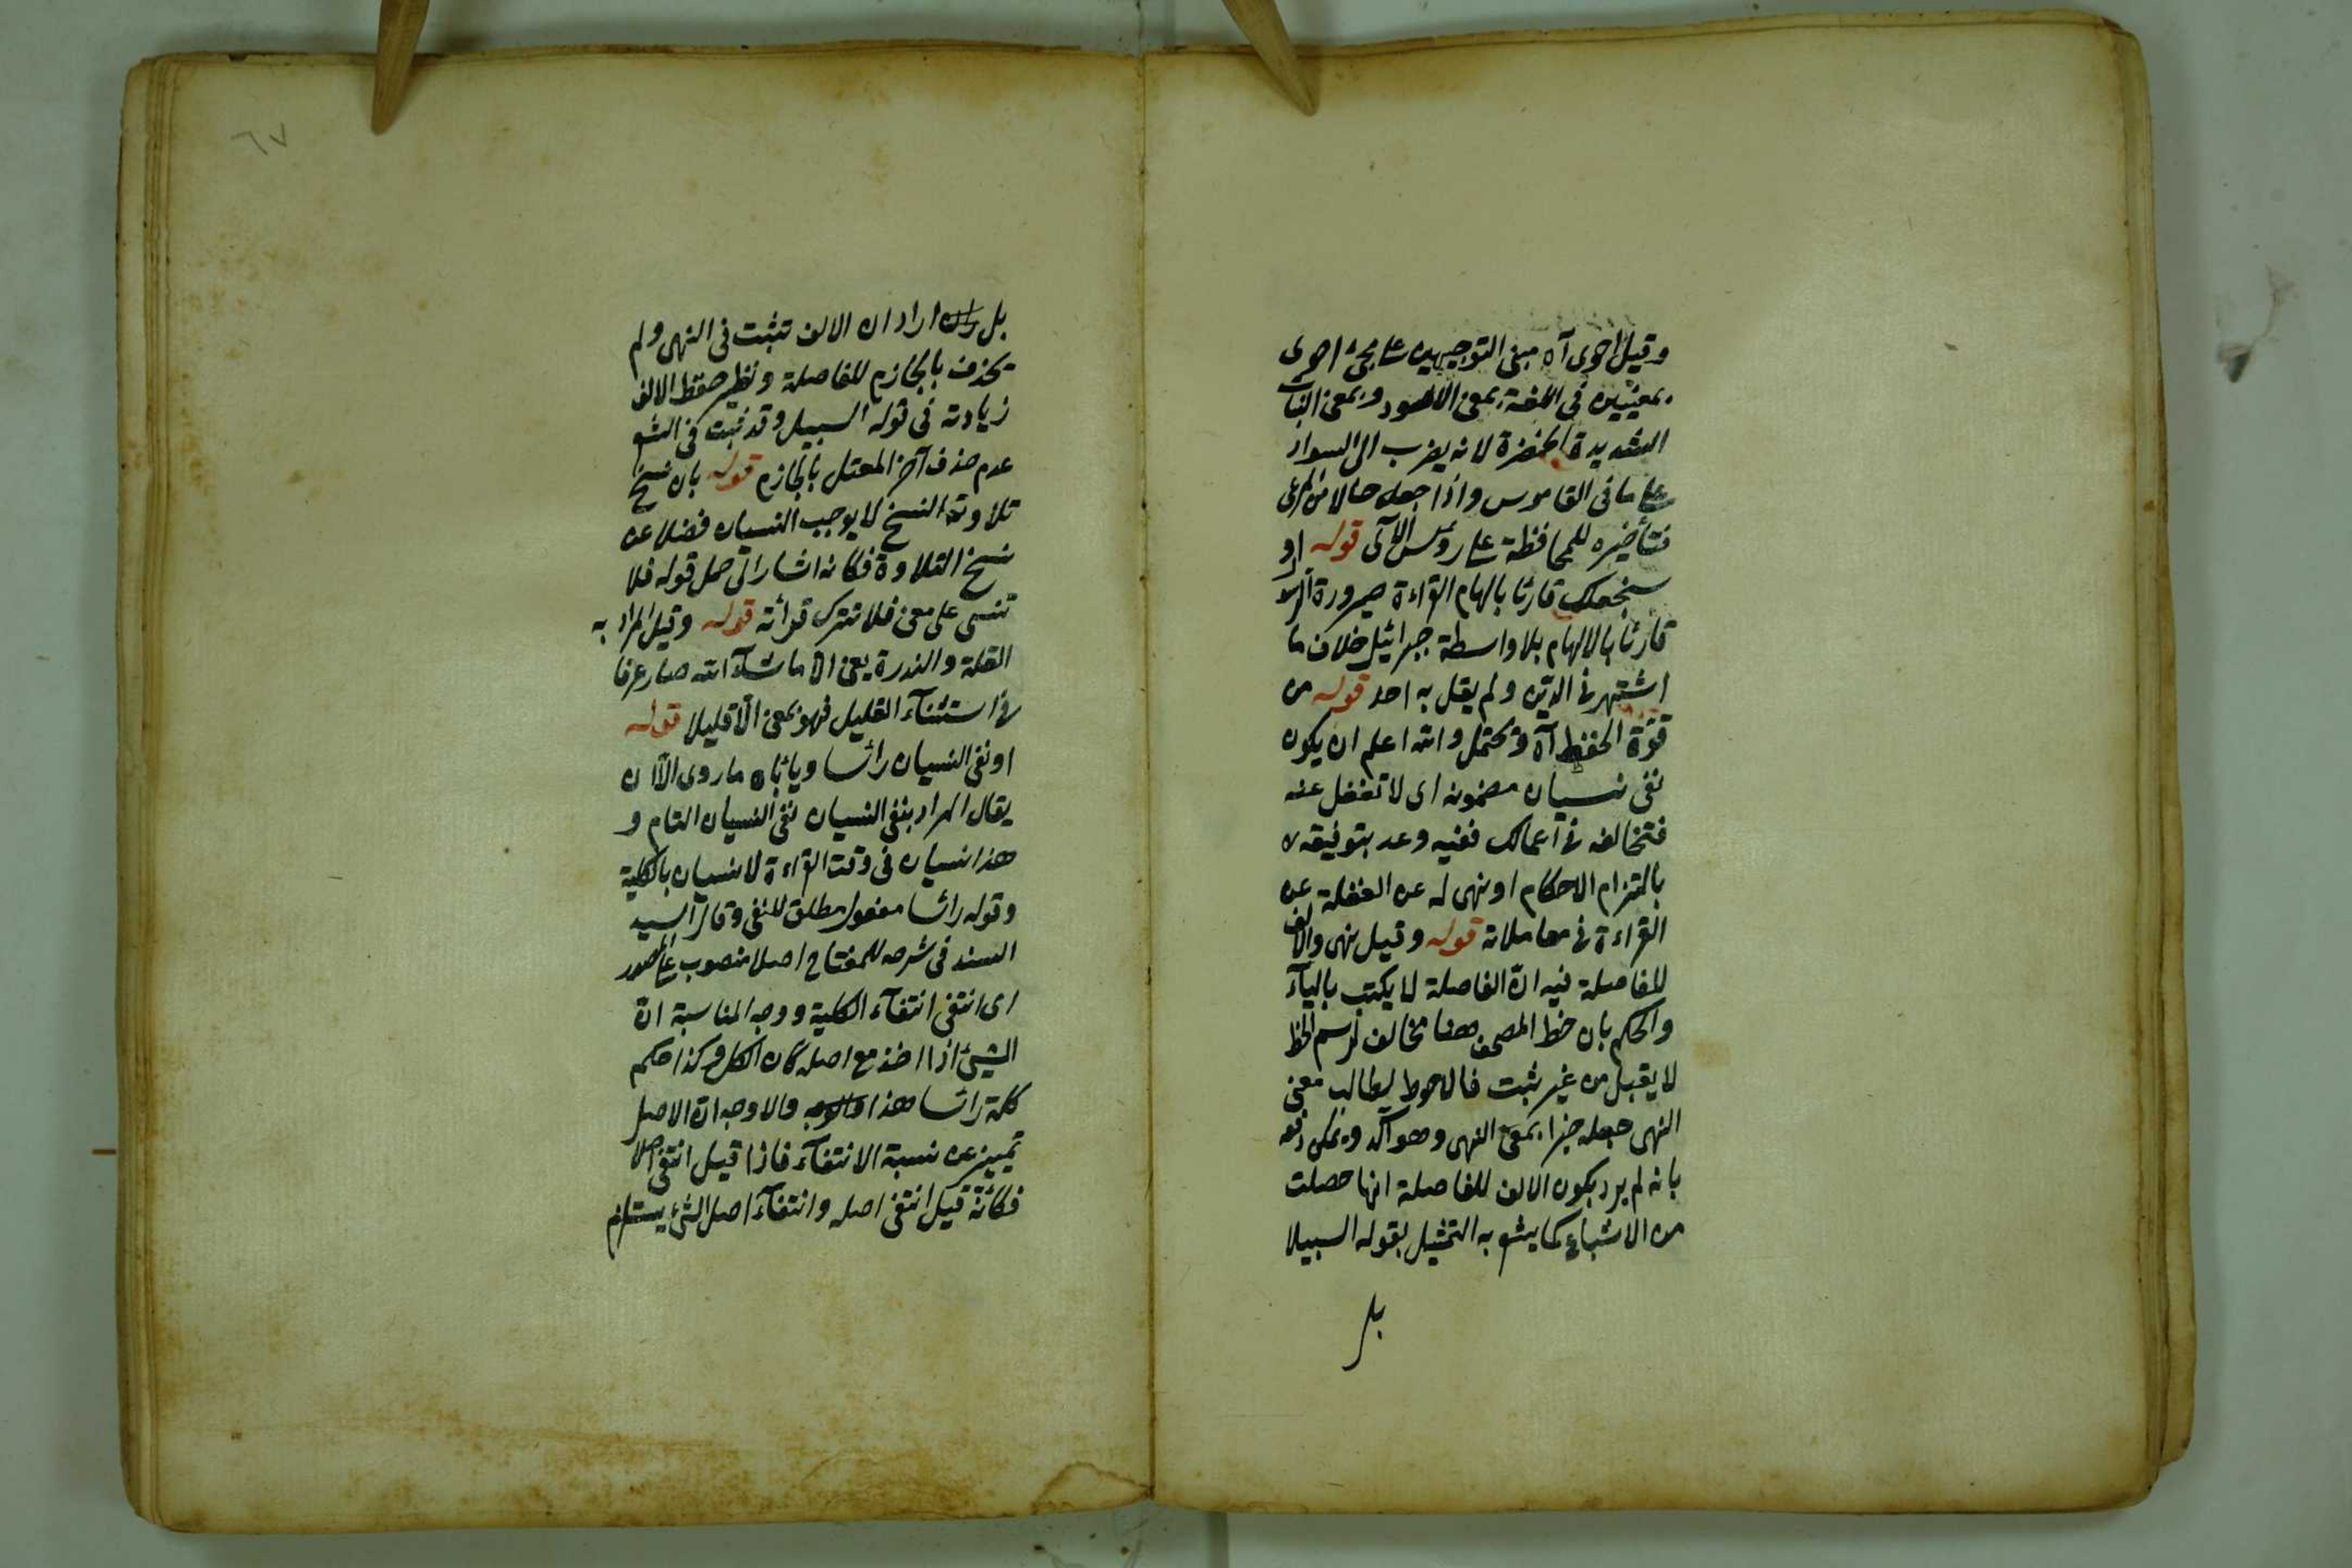 وقيل احوى آه مبنى التوجيهين على مجئ احوى
بمعنيين في اللغة بمعنى الاسود وبمعنى النبات
الشديدة الخضرة لانه يضرب الى السواد
على ما في القاموس واذا جعله حالا من المرعى
فتأخيره للمحافظة على رؤس الآى قوله او
سنجعلك قارئا بالهام القراءة صيرورة الرسول
قارئا بالالهام بلا واسطة جبرائيل خلاف ما
اشتهر في الدين ولم يقل به احد قوله من
قوة الحفظ آه ويحتمل والله اعلم ان يكون
نفى نسيان مضمونه اى لا تغفل عنه
فتخالفه في اعمالك ففيه وعد بتوفيقه
بالتزام الاحكام او نهى له عن الغفلة عن
القراءة في معاملاته قوله وقيل نهى والالف
للفاصلة فيه ان الفاصلة لا يكتب بالياء
والحكم بان خط المصحف ههنا مخالف لرسم الخط
لا يقبل من غير ثبت فالاحوط لطالب معنى
النهى جعله خبرا بمعنى النهى وهو آكد ويمكن دفعه
بانه لم يرد بكون الالف للفاصلة انها حصلت
من الاشباع كما يشعر به التمثيل بقوله السبيلا
بل
٦٧
بل اراد ان الالف تثبت في النهى ولم
يحذف بالجازم للفاصلة ونظير حفظ الالف
زيادته في قوله السبيل وقد ثبت في الشعر
عدم حذف آخر المعتل بالجازم قوله بان نسخ
تلاوته النسخ لا يوجب النسيان فضلا عن
نسخ التلاوة فكانه اشار الى حمل قوله فلا
تنسى على معنى فلا تترك قرائة قوله وقيل المراد به
القلة والندرة يعنى الا ما شاء الله صار عرفا
في استثناء القليل فهو بمعنى الا قليلا قوله
او نفى النسيان رأسا ويأباه ما روى الا ان
يقال المراد بنفى النسيان نفى النسيان التام و
هذا نسيان في وقت القراءة لا نسيان بالكلية
وقوله رأسا مفعول مطلق للنفى وقال السيد
السند في شرحه للمفتاح اصلا منصوب على المصدر
اى انتفى انتفاء الكلية ووجه المناسبة ان
الشئ اذا اخذ مع اصله كان الكل وكذا حكم
كلمة رأسا هذا والاوجه ان الاصل
تمييز عن نسبة الانتفاء فاذا قيل انتفى اصلا
فكانه قيل انتفى اصله وانتفاء اصل الشئ يستلزم